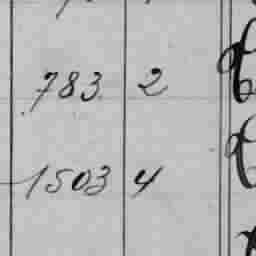 783 2
1503 4